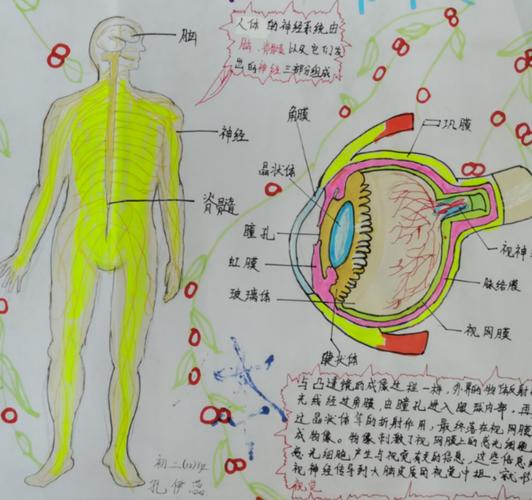 人体 的神经系统由
脑、脊髓 以及它们发
出的神经 三部分组成
脑
神经
脊髓
角膜
晶状体
瞳孔
虹膜
玻璃体
睫状体
巩膜
视神
脉络膜
视网膜
与凸透镜的成像过程一样，外界的物体反射
光线经过角膜，由瞳孔进入眼球内部，再
过晶状体等的折射作用，最终落在视网膜
成物像。物像刺激了视网膜上的感光细胞
感光细胞产生与视觉有关的信息，这些信息
视神经传导到大脑皮层的视觉中枢。就
视觉
初二(12)班
孔伊蕊